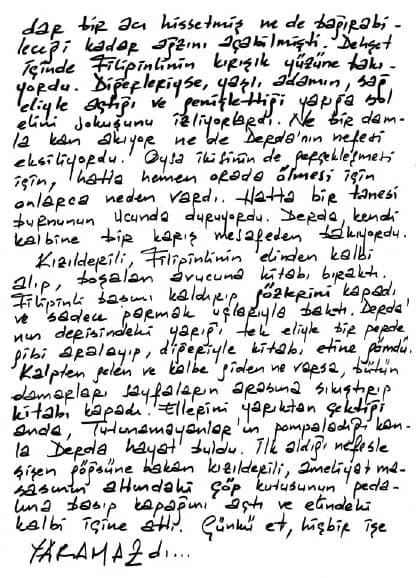 dar bir acı hissetmiş ne de bağırabi-
leceği kadar ağzını açabilmişti. Dehşet
içinde Filipinlinin kırışık yüzüne bakı-
yordu. Diğerleriyse, yaşlı adamın, sağ
eliyle açtığı ve genişlettiği yarığa sol
elini sokuşunu izliyorlardı. Ne bir dam-
la kan akıyor ne de Derda'nın nefesi
eksiliyordu. Oysa ikisinin de gerçekleşmesi
için, hatta hemen orada ölmesi için
onlarca neden vardı. Hatta bir tanesi
burnunun ucunda duruyordu. Derda, kendi
kalbine bir karış mesafeden bakıyordu.
Kızılderili, Filipinlinin elinden kalbi
alıp, boşalan avucuna kitabı bıraktı.
Filipinli başını kaldırıp, gözlerini kapadı
ve sadece parmak uçlarıyla baktı. Derda'
nın derisindeki yarığı, tek eliyle bir perde
gibi aralayıp, diğeriyle kitabı etine gömdü.
Kalpten gelen ve kalbe giden ne varsa, bütün
damarları sayfaların arasına sıkıştırıp
kitabı kapadı. Ellerini yarıktan çektiği
anda, Tutunamayanlar'ın pompaladığı kan-
la Derda hayat buldu. İlk aldığı nefesle
şişen göğsüne bakan kızılderili, ameliyat ma-
sasının altındaki çöp kutusunun peda-
lına basıp kapağını açtı ve elindeki
kalbi içine attı. Çünkü et, hiçbir işe
YARAMAZdı...